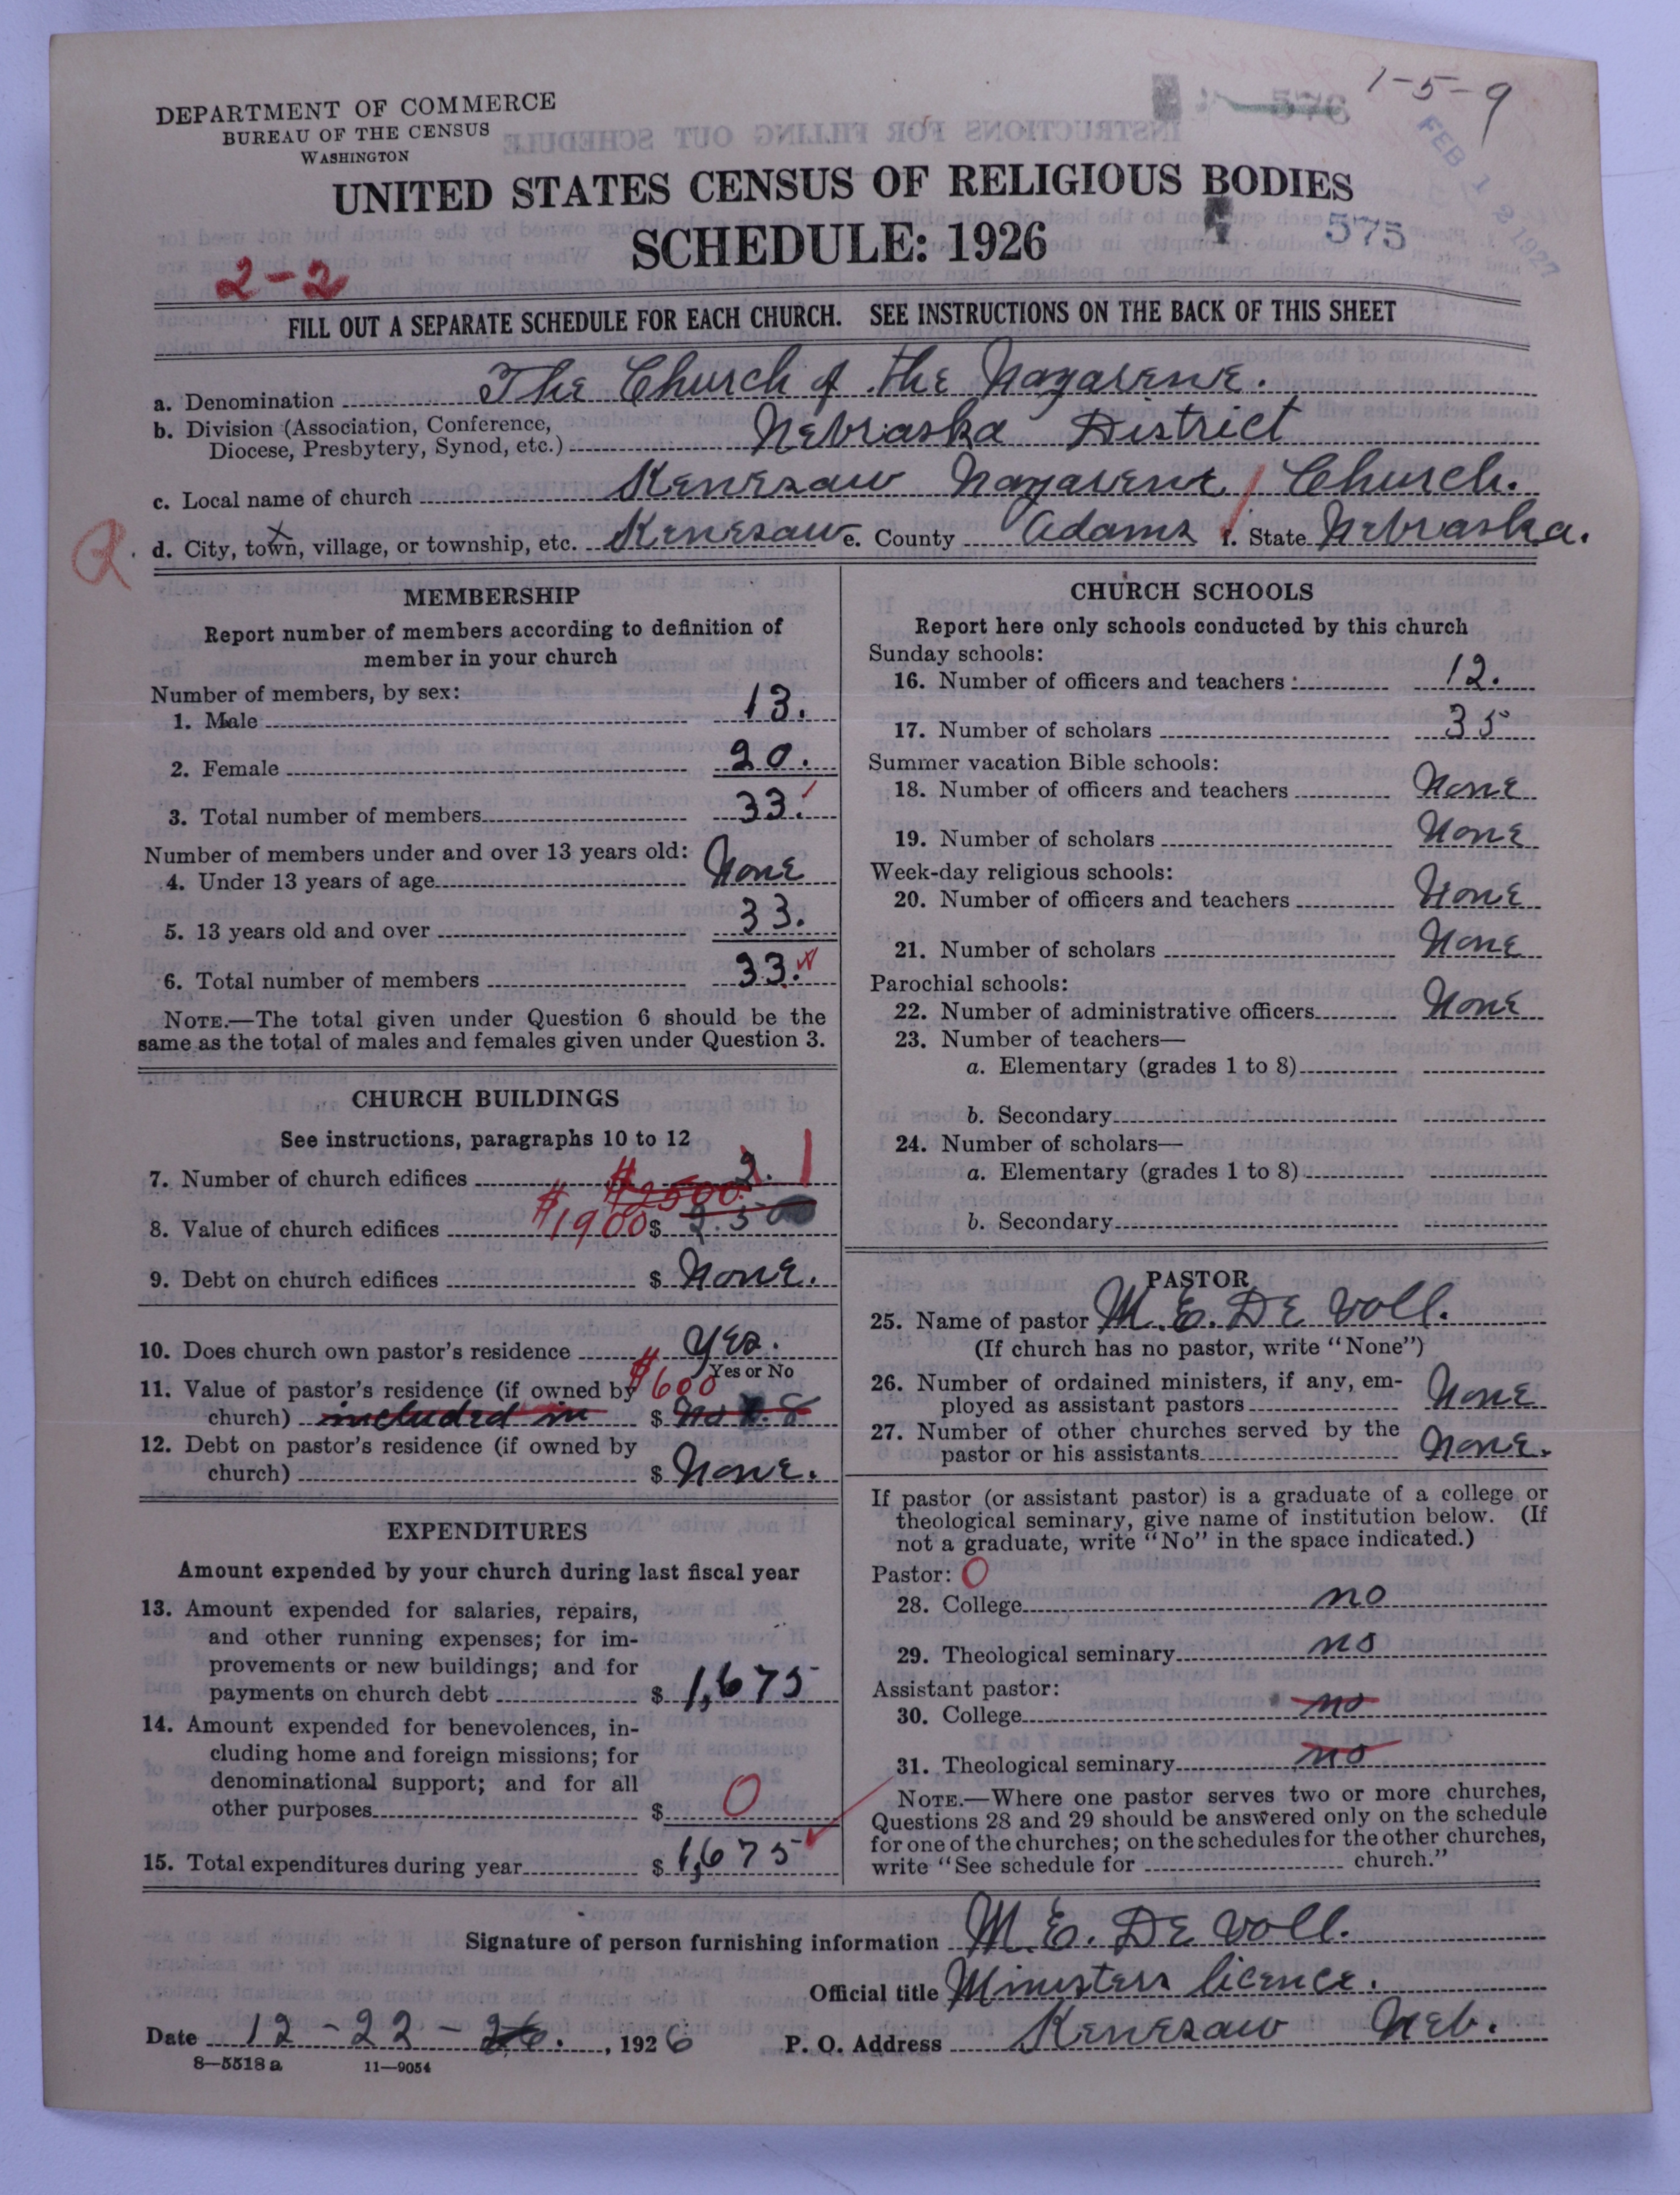 1-5-9
DEPARTMENT OF COMMERCE
BUREAU OF THE CENSUS
WASHINGTON
FEB 1 8 1927
UNITED STATES CENSUS OF RELIGIOUS BODIES
SCHEDULE: 1926
575
2-2
FILL OUT A SEPARATE SCHEDULE FOR EACH CHURCH. SEE INSTRUCTIONS ON THE BACK OF THIS SHEET
a. Denomination The Church of the Nazarene.
b. Division (Association, Conference,
Diocese, Presbytery, Synod, etc.) Nebraska District
c. Local name of church Kenesaw Nazarene Church.
d. City, town, village, or township, etc. Kenesaw e. County Adams f. State Nebraska.
MEMBERSHIP
Report number of members according to definition of
member in your church
Number of members, by sex:
1. Male 13.
2. Female 20.
3. Total number of members 33.
Number of members under and over 13 years old:
4. Under 13 years of age None
5. 13 years old and over 33.
6. Total number of members 33.
NOTE.—The total given under Question 6 should be the
same as the total of males and females given under Question 3.
CHURCH BUILDINGS
See instructions, paragraphs 10 to 12
7. Number of church edifices 2. 1
$2500
8. Value of church edifices $1900 $ 2.500
9. Debt on church edifices $ None.
10. Does church own pastor's residence Yes.
Yes or No
11. Value of pastor's residence (if owned by $600
church) included in $ No 8
12. Debt on pastor's residence (if owned by
church) $ None.
EXPENDITURES
Amount expended by your church during last fiscal year
13. Amount expended for salaries, repairs,
and other running expenses; for im-
provements or new buildings; and for
payments on church debt $ 1,675
14. Amount expended for benevolences, in-
cluding home and foreign missions; for
denominational support; and for all
other purposes $ 0
15. Total expenditures during year $ 1,675
CHURCH SCHOOLS
Report here only schools conducted by this church
Sunday schools:
16. Number of officers and teachers 12.
17. Number of scholars 35
Summer vacation Bible schools:
18. Number of officers and teachers None
19. Number of scholars None
Week-day religious schools:
20. Number of officers and teachers None
21. Number of scholars None
Parochial schools:
22. Number of administrative officers None
23. Number of teachers—
a. Elementary (grades 1 to 8)
b. Secondary
24. Number of scholars—
a. Elementary (grades 1 to 8)
b. Secondary
PASTOR
25. Name of pastor M. E. De Voll.
(If church has no pastor, write "None")
26. Number of ordained ministers, if any, em-
ployed as assistant pastors None
27. Number of other churches served by the
pastor or his assistants None.
If pastor (or assistant pastor) is a graduate of a college or
theological seminary, give name of institution below. (If
not a graduate, write "No" in the space indicated.)
Pastor: 0
28. College no
29. Theological seminary no
Assistant pastor:
30. College no
31. Theological seminary no
NOTE.—Where one pastor serves two or more churches,
Questions 28 and 29 should be answered only on the schedule
for one of the churches; on the schedules for the other churches,
write "See schedule for church."
Signature of person furnishing information M. E. De Voll.
Official title Ministers licence.
Date 12-22-26., 1926 P. O. Address Kenesaw Neb.
8—5518 a 11—9054